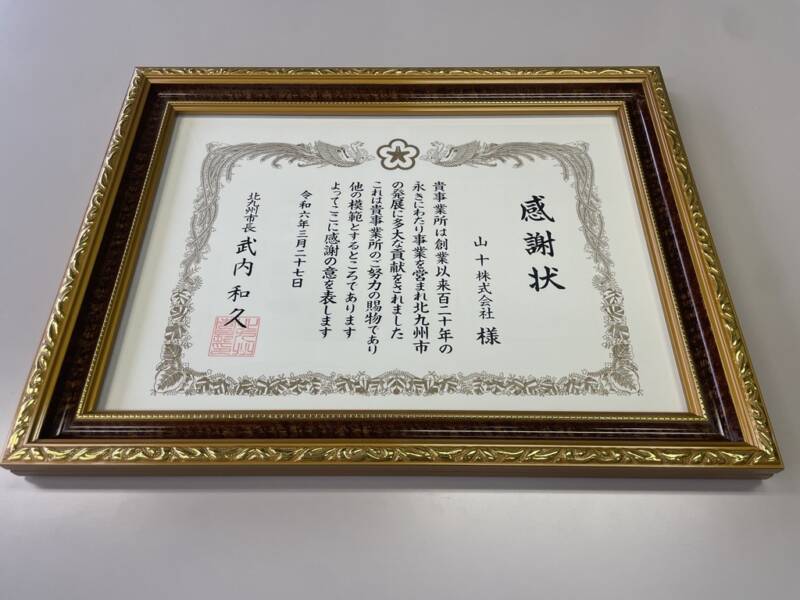 感謝状
山十株式会社 様
貴事業所は創業以来百二十年の
永きにわたり事業を営まれ北九州市
の発展に多大な貢献をされました
これは貴事業所のご努力の賜物であり
他の模範とするところであります
よってここに感謝の意を表します
令和六年三月二十七日
北九州市長 武内和久